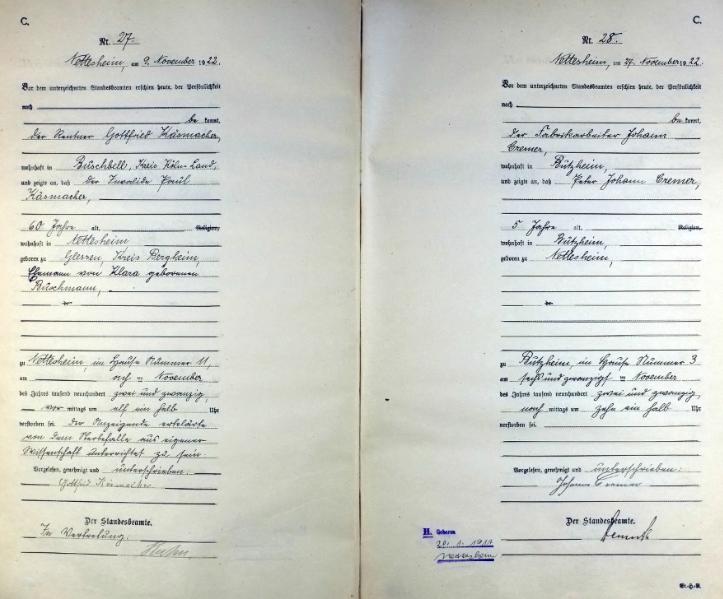 C.
Nr. 27.
Nettesheim, am 9. November 1922.
Vor dem unterzeichneten Standesbeamten erschien heute, der Persönlichkeit
nach
be kannt,
der Rentner Gottfried Käsmacher,
wohnhaft in Buschbell, Kreis Köln-Land,
und zeigte an, daß der Invalide Paul
Käsmacher,
60 Jahre alt, Religion,
wohnhaft in Nettesheim
geboren zu Glessen, Kreis Bergheim,
Ehemann von Klara geborenen
Buschmann,
zu Nettesheim, im Hause Nummer 11,
am November
des Jahres tausend neunhundert zwei und zwanzig
vor mittags um elf ein halb Uhr
verstorben sei. Der Anzeigende erklärte
von dem Sterbefalle aus eigener
Wissenschaft unterrichtet zu sein
Vorgelesen, genehmigt und unterschrieben:
Gottfried Käsmacher
Der Standesbeamte.
In Vertretung.
C.
Nr. 28.
Nettesheim, am 27. November 1922.
Vor dem unterzeichneten Standesbeamten erschien heute, der Persönlichkeit
nach
be kannt,
der Fabrikarbeiter Johann
Cremer,
wohnhaft in Butzheim,
und zeigte an, daß Peter Johann Cremer,
5 Jahre alt, Religion,
wohnhaft in Butzheim,
geboren zu Nettesheim,
zu Butzheim, im Hause Nummer 3
am sechs und zwanzigsten November
des Jahres tausend neunhundert zwei und zwanzig,
nach mittags um zehn ein halb Uhr
verstorben sei.
Vorgelesen, genehmigt und unterschrieben:
Johann Cremer
Der Standesbeamte.
H. Geboren
1917
Nettesheim